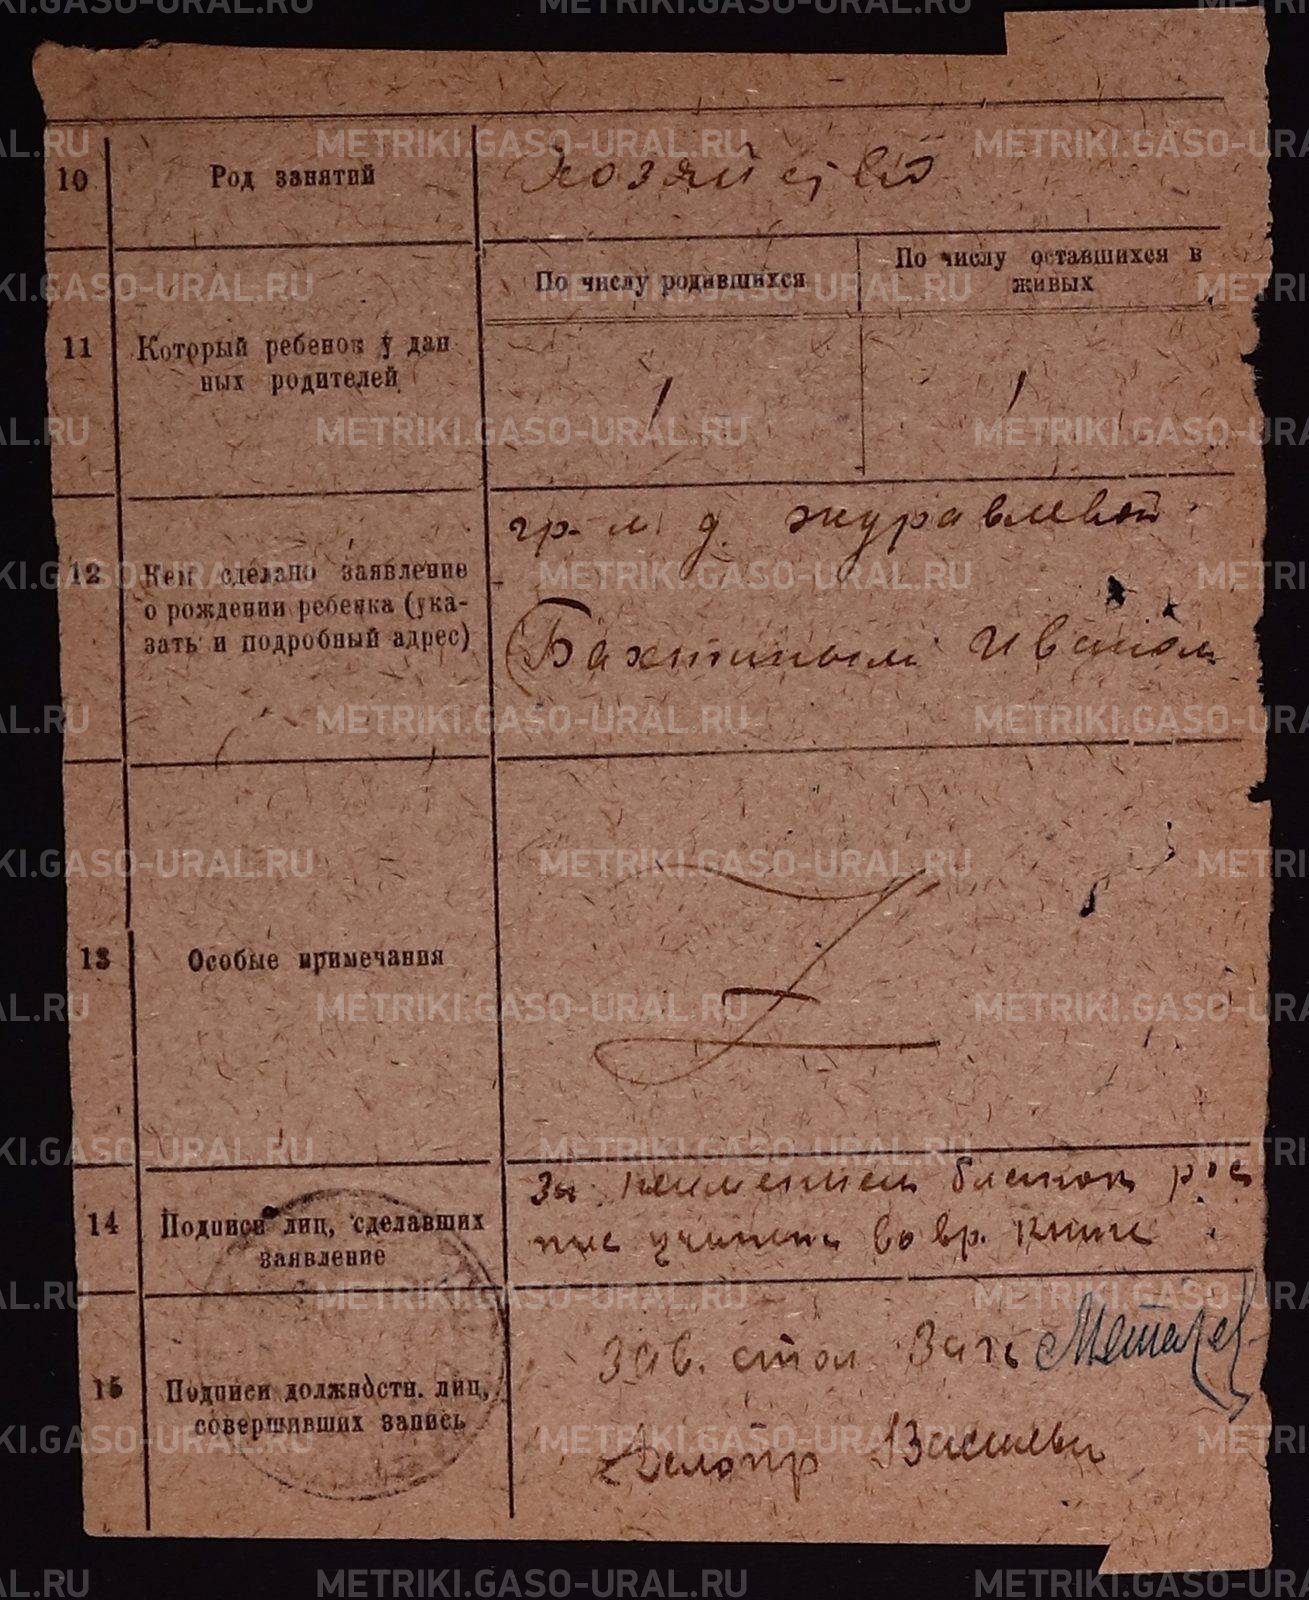 10 Род занятий Хозяйство
11 Который ребенок у дан
ных родителей
По числу родившихся
По числу оставшихся в
живых
1 1
12 Кем сделано заявление
о рождении ребенка (ука-
зать и подробный адрес)
гр. м. д. журавлевой
Бахтиным Иваном
13 Особые примечания
14 Подписи лиц, сделавших
заявление
За неимением бланков рос
пис учинена во вр. книге
15 Подписи должностн. лиц,
совершивших запись
Зав. стол Загс
Делопр Васильев
METRIKI.GASO-URAL.RU